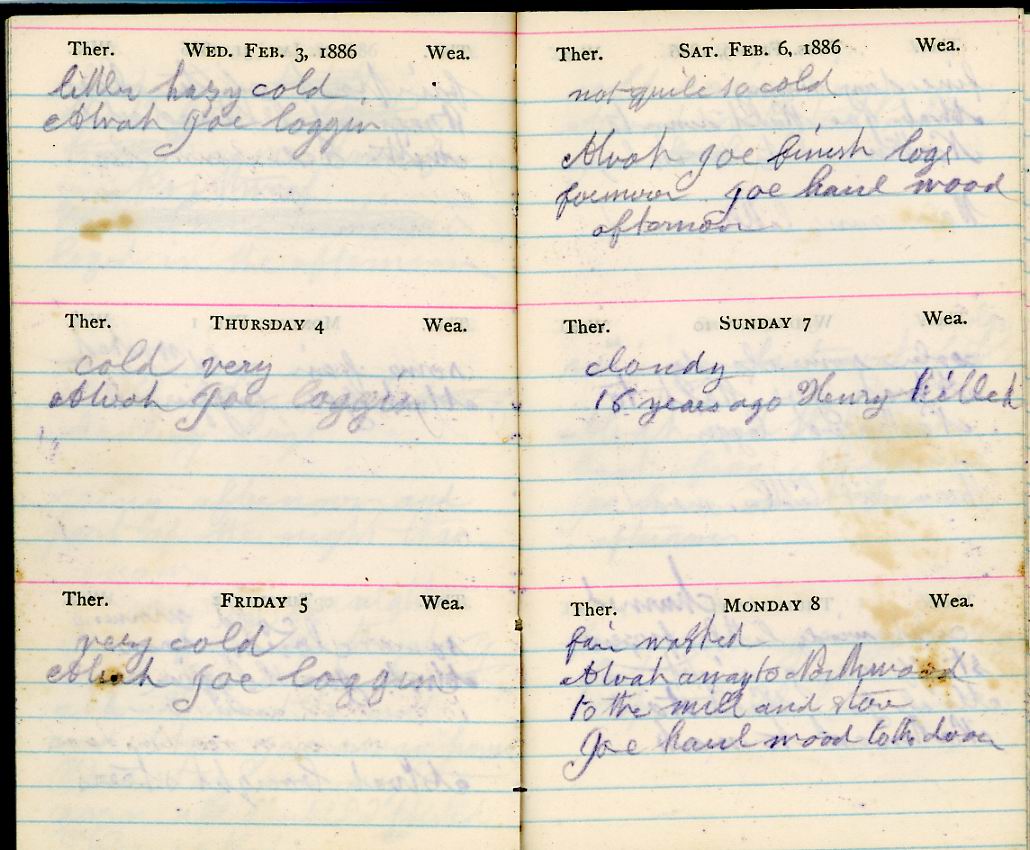 Ther. WED. FEB. 3, 1886 Wea.
hazy cold
Alvah Joe loggin
Ther. THURSDAY 4 Wea.
cold very
Alvah Joe loggin
Ther. FRIDAY 5 Wea.
very cold
Alvah Joe loggin
Ther. SAT. FEB. 6, 1886 Wea.
not quite so cold
Alvah Joe finish logs
forenoon Joe haul wood
afternoon
Ther. SUNDAY 7 Wea.
cloudy
years ago Henry killed
Ther. MONDAY 8 Wea.
fair washed
Alvah away to Northwood
to the mill and store
Joe haul wood to the door